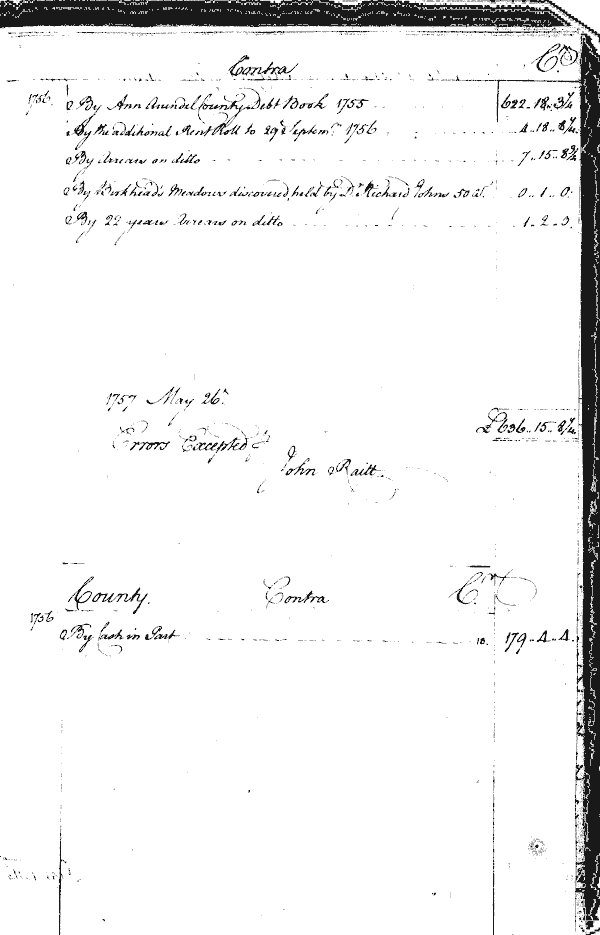 Contra Cr
1756 By Ann Arundel County Debt Book 1755 622.. 18.. 3¼
By the additional Rent Roll to 29th Septemr 1756 4.. 18.. 8¼
By Arrears on ditto 7.. 15.. 8¾
By Birkheads Meadows discovered, held by Dr Richard Johns 50 as. 0.. 1.. 0.
By 22 years Arrears on ditto 1.. 2.. 0.
1757 May 26th
£636.. 15.. 8¼
Errors Excepted
John Raitt
County. Contra Cr
1756
By Cash in Part 10. 179.. 4.. 4.